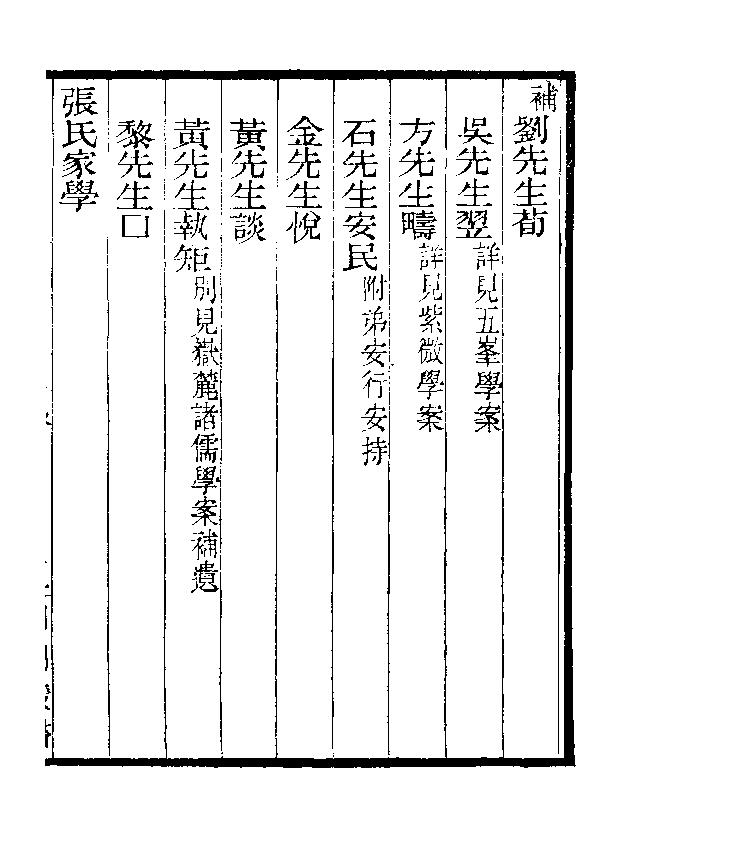 補劉先生荀
吳先生翌詳見五峯學案
方先生疇詳見紫微學案
石先生安民附弟安行安持
金先生悅
黃先生談
黃先生執矩別見嶽麓諸儒學案補遺
黎先生□
張氏家學